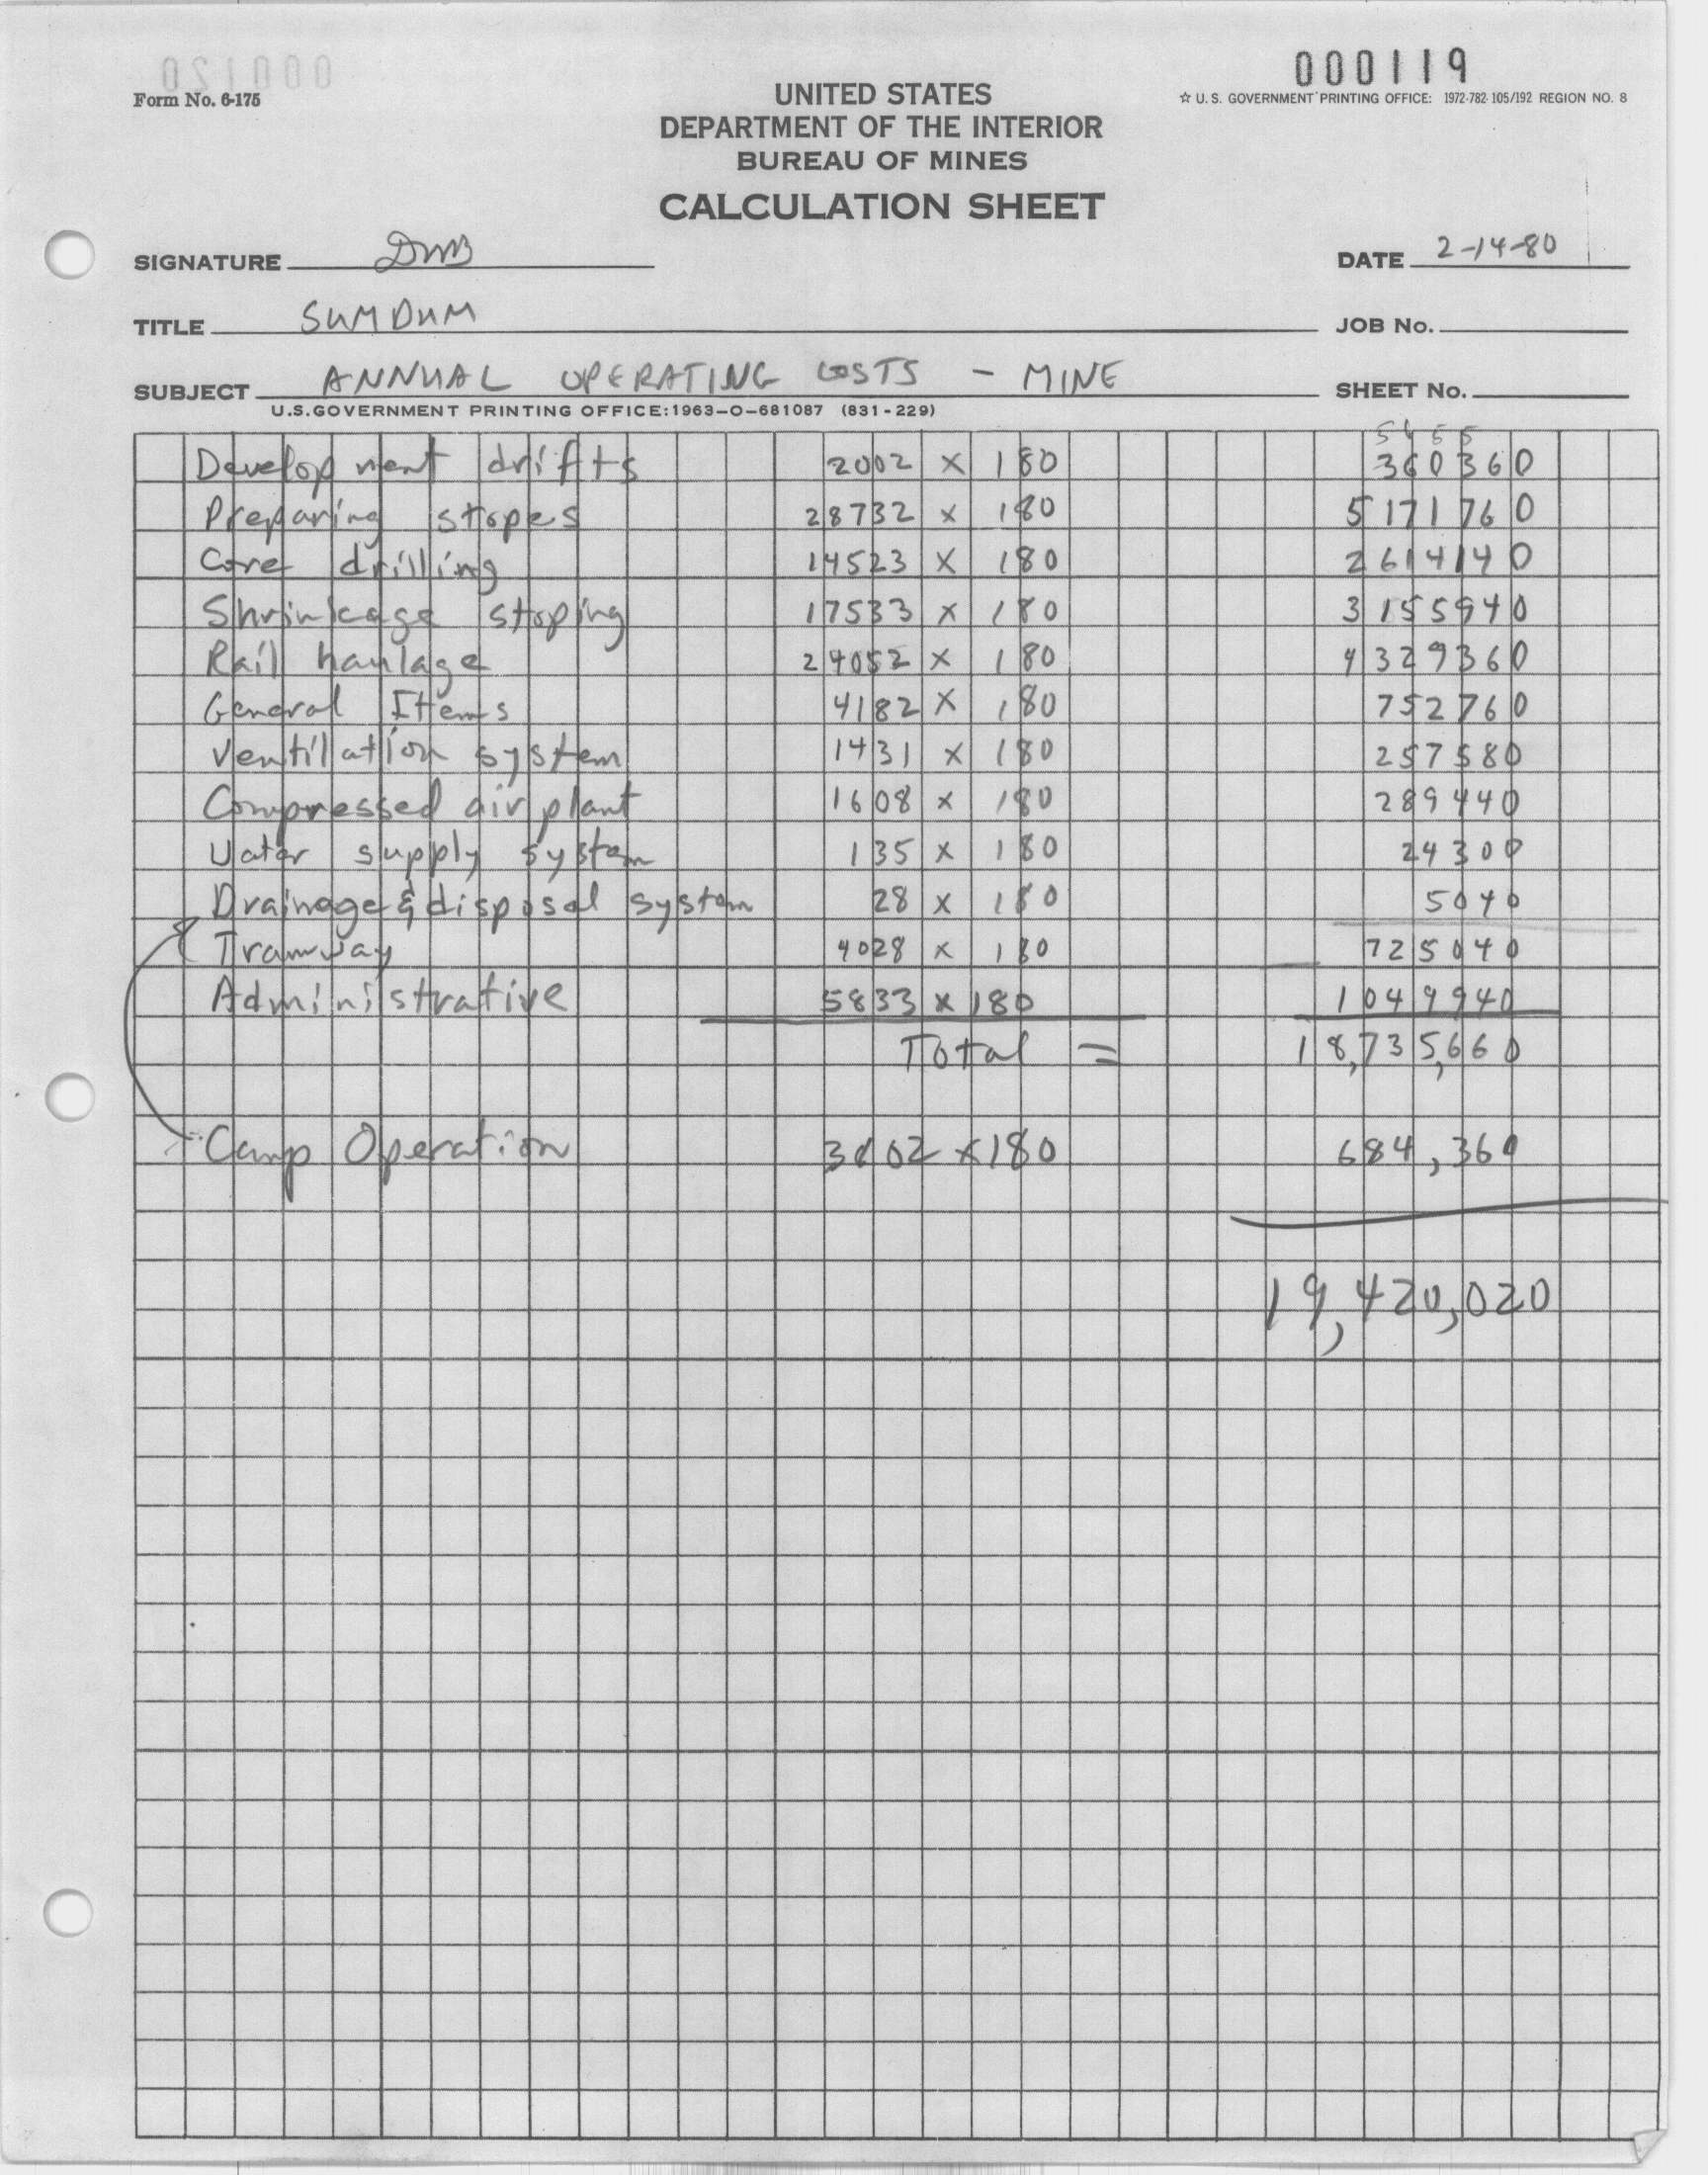 000119
000120
Form No. 6-175
UNITED STATES
☆ U. S. GOVERNMENT PRINTING OFFICE: 1972-782-105/192 REGION NO. 8
DEPARTMENT OF THE INTERIOR
BUREAU OF MINES
CALCULATION SHEET
SIGNATURE DWB DATE 2-14-80
TITLE SUMDUM JOB No.
SUBJECT ANNUAL OPERATING COSTS - MINE SHEET No.
U.S.GOVERNMENT PRINTING OFFICE:1963-O-681087 (831-229)
Development drifts 2002 x 180 360360
Preparing stopes 28732 x 180 5171760
Core drilling 14523 x 180 2614140
Shrinkage stoping 17533 x 180 3155940
Rail haulage 24052 x 180 4329360
General Items 4182 x 180 752760
Ventilation system 1431 x 180 257580
Compressed air plant 1608 x 180 289440
Water supply system 135 x 180 24300
Drainage & disposal system 28 x 180 5040
Tramway 4028 x 180 725040
Administrative 5833 x 180 1049940
Total = 18,735,660
Camp Operation 3802 x 180 684,360
19,420,020